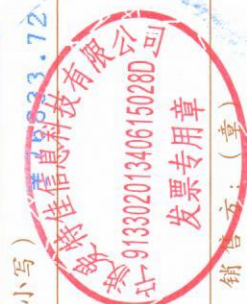 小写）
5833.72
特佳信息科技有限公司
91330201340615028D
发票专用章
销售方：（章）